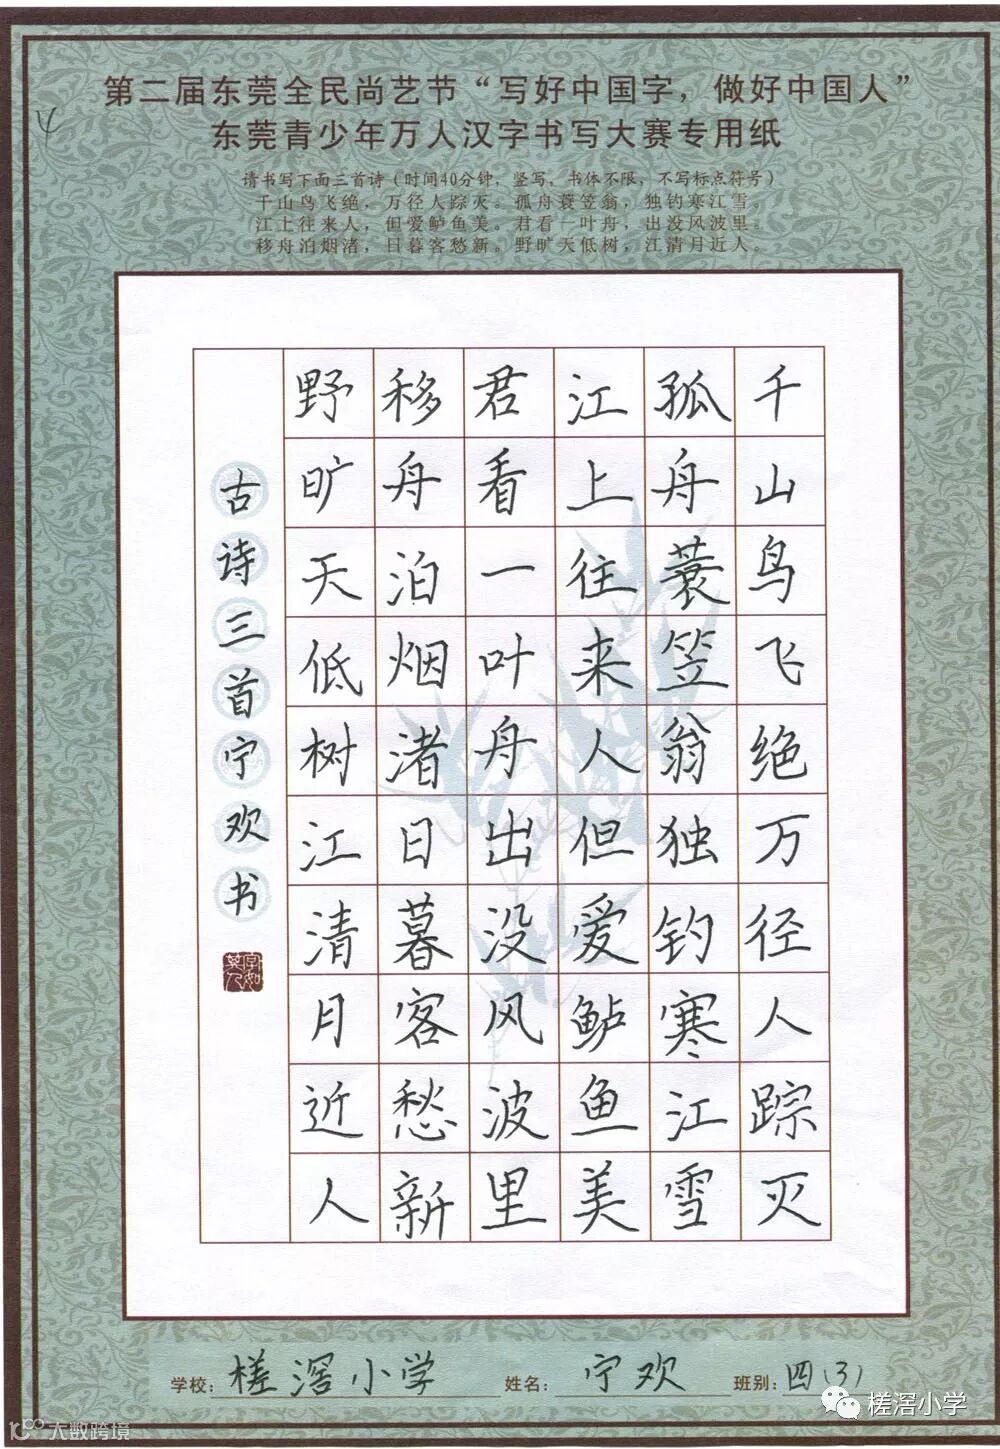 第二届东莞全民尚艺节“写好中国字，做好中国人”
东莞青少年万人汉字书写大赛专用纸
请书写下面三首诗（时间40分钟，竖写，书体不限，不写标点符号）
千山鸟飞绝，万径人踪灭。孤舟蓑笠翁，独钓寒江雪。
江上往来人，但爱鲈鱼美。君看一叶舟，出没风波里。
移舟泊烟渚，日暮客愁新。野旷天低树，江清月近人。
千山鸟飞绝万径人踪灭
孤舟蓑笠翁独钓寒江雪
江上往来人但爱鲈鱼美
君看一叶舟出没风波里
移舟泊烟渚日暮客愁新
野旷天低树江清月近人
古诗三首宁欢书
字如其人
学校：槎滘小学 姓名：宁欢 班别：四（3）
槎滘小学
大数跨境